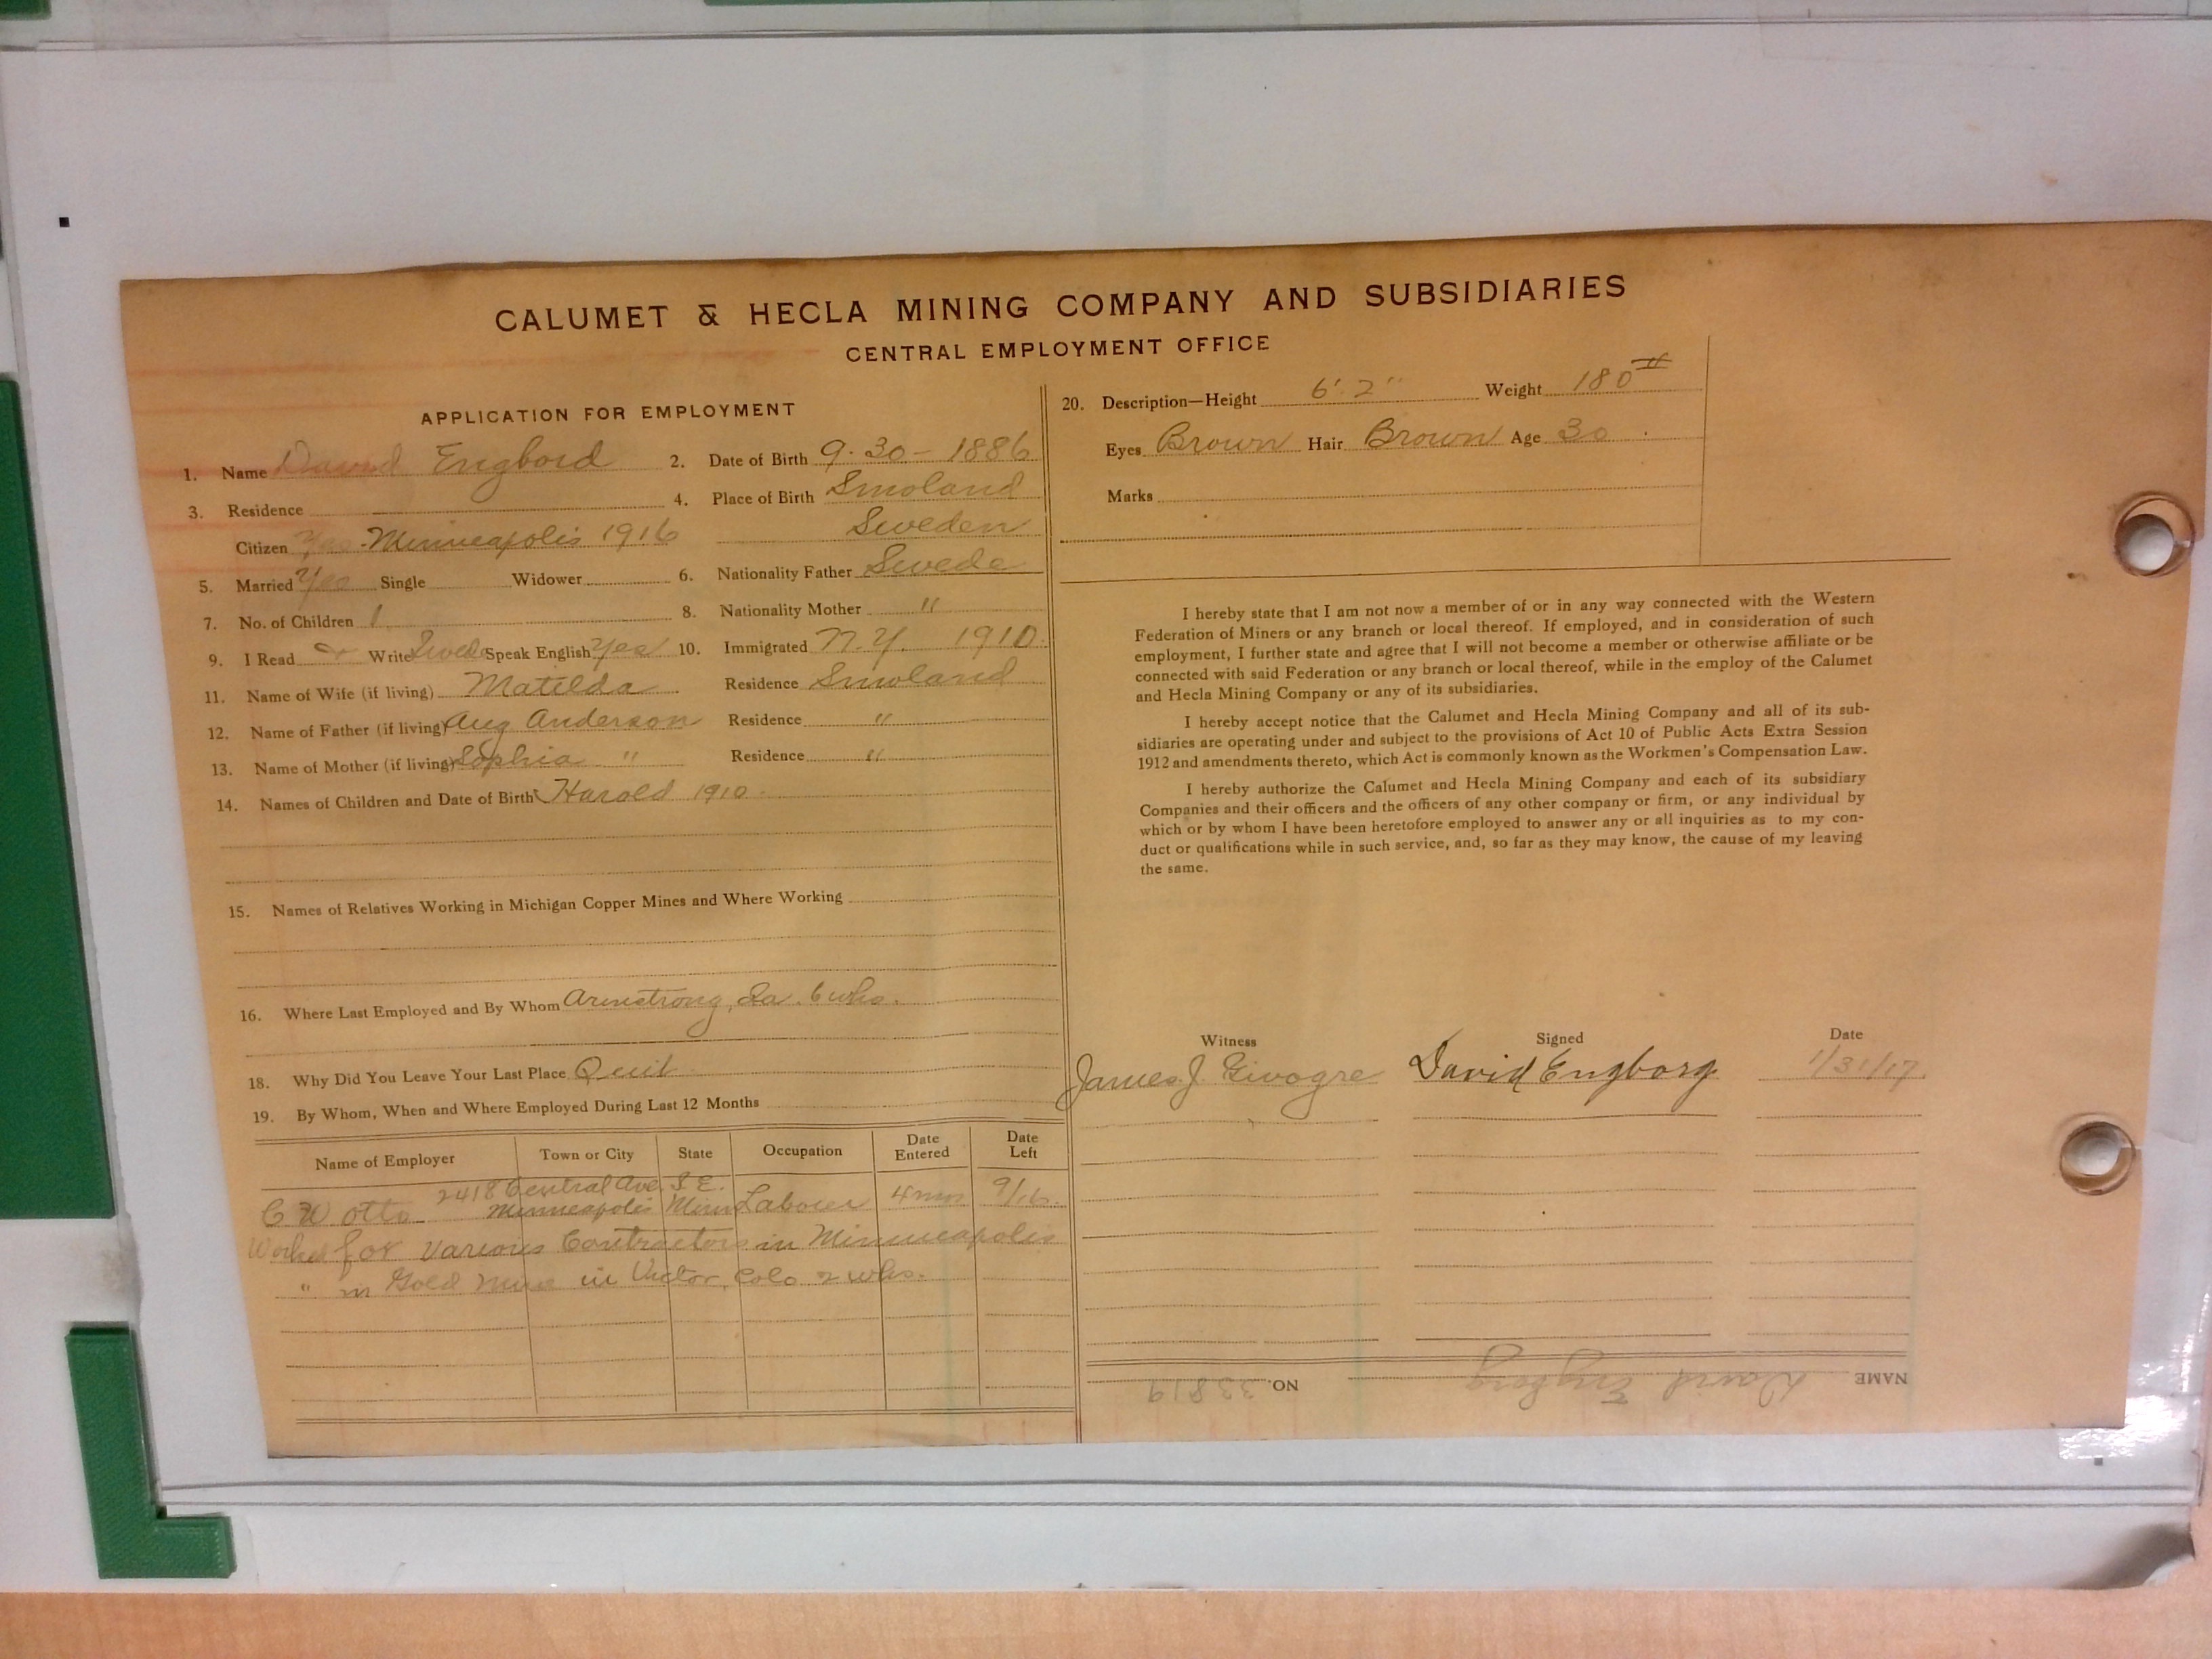 CALUMET & HECLA MINING COMPANY AND SUBSIDIARIES
CENTRAL EMPLOYMENT OFFICE
APPLICATION FOR EMPLOYMENT
1. Name David Engbord 2. Date of Birth 9-30-1886
3. Residence 4. Place of Birth Smoland
Citizen Yes - Minneapolis 1916 Sweden
5. Married Yes Single Widower 6. Nationality Father Swede
7. No. of Children 1 8. Nationality Mother "
9. I Read & Write Swede Speak English Yes 10. Immigrated N.Y. 1910
11. Name of Wife (if living) Matilda Residence Smoland
12. Name of Father (if living) Aug Anderson Residence "
13. Name of Mother (if living) Sophia " Residence "
14. Names of Children and Date of Birth Harold 1910
15. Names of Relatives Working in Michigan Copper Mines and Where Working
16. Where Last Employed and By Whom Armstrong, Ia. 6 wks.
18. Why Did You Leave Your Last Place Quit
19. By Whom, When and Where Employed During Last 12 Months
Name of Employer Town or City State Occupation Date Entered Date Left
2418 Central Ave. S.E.
C W Otto Minneapolis Minn Laborer 4 mos 9/16
Worked for Various Contractors in Minneapolis
" in Gold Mine in Victor, Colo 2 wks.
20. Description—Height 6' 2" Weight 180 #
Eyes Brown Hair Brown Age 30
Marks
I hereby state that I am not now a member of or in any way connected with the Western
Federation of Miners or any branch or local thereof. If employed, and in consideration of such
employment, I further state and agree that I will not become a member or otherwise affiliate or be
connected with said Federation or any branch or local thereof, while in the employ of the Calumet
and Hecla Mining Company or any of its subsidiaries.
I hereby accept notice that the Calumet and Hecla Mining Company and all of its sub-
sidiaries are operating under and subject to the provisions of Act 10 of Public Acts Extra Session
1912 and amendments thereto, which Act is commonly known as the Workmen's Compensation Law.
I hereby authorize the Calumet and Hecla Mining Company and each of its subsidiary
Companies and their officers and the officers of any other company or firm, or any individual by
which or by whom I have been heretofore employed to answer any or all inquiries as to my con-
duct or qualifications while in such service, and, so far as they may know, the cause of my leaving
the same.
Witness Signed Date
James J. David Engborg 1/31/17
NAME David Engborg NO. 33819